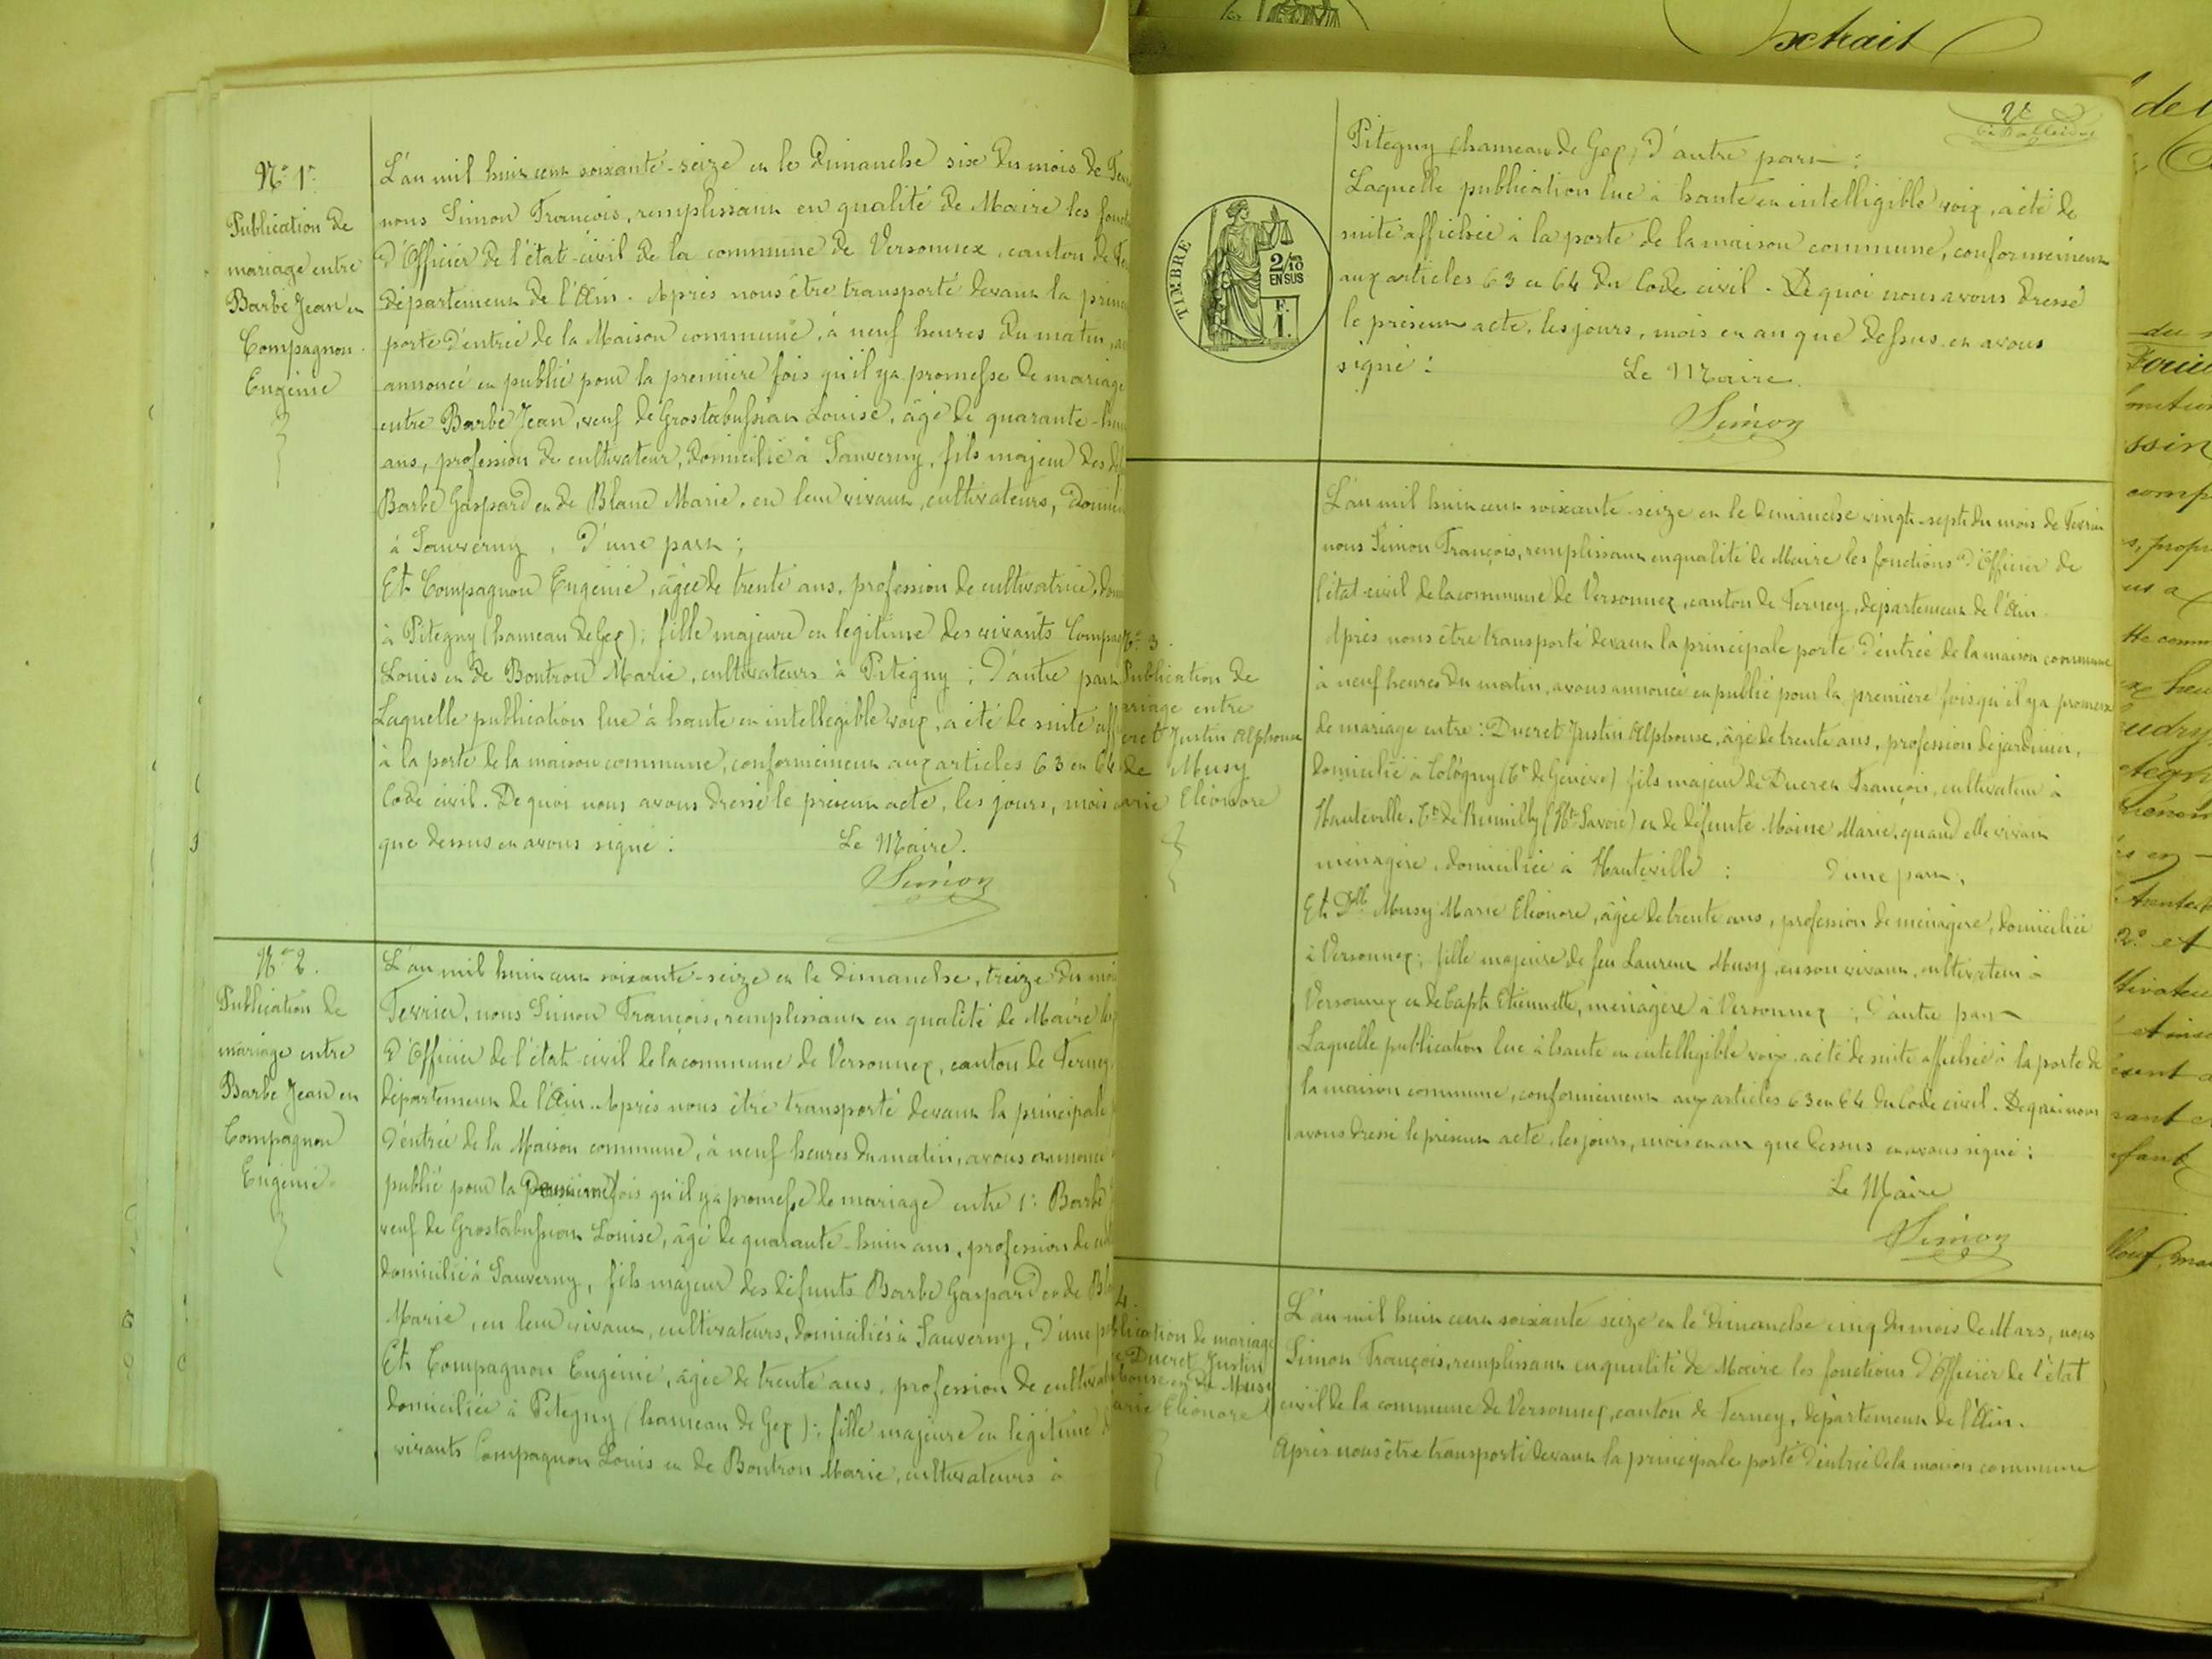 N° 1er
Publication de
mariage entre
Barbé Jean et
Compagnon
Eugénie
L'an mil huit cent soixante-seize et le Dimanche six du mois de
nous Simon François, remplissant en qualité de Maire les
d'Officier de l'état-civil de la commune de Versonnex, canton de
département de l'Ain. Après nous être transporté devant la
porte d'entrée de la Maison commune, à neuf heures du matin,
annoncé et publié pour la première fois qu'il y a promesse de mariage
entre Barbé Jean, veuf de Grostabussiat Louise, âgé de quarante-
ans, profession de cultivateur, domicilié à Sauverny, fils majeur des
Barbé Gaspard et de Blanc Marie, en leur vivant, cultivateurs,
à Sauverny, d'une part;
Et Compagnon Eugénie, âgée de trente ans, profession de cultivatrice,
à Pitegny (hameau de Gex); fille majeure et légitime des vivants
Louis et de Boutron Marie, cultivateurs à Pitégny; d'autre part
Laquelle publication lue à haute et intellegible voix, a été de suite
à la porte de la maison commune, conformément aux articles 63 et 64
Code civil. De quoi nous avons dressé le présent acte, les jours, mois
que dessus et avons signé:
Le Maire.
Simon
N° 2.
Publication de
mariage entre
Barbé Jean et
Compagnon
Eugénie
L'an mil huit cent soixante-seize et le dimanche, treize du
Février, nous Simon François, remplissant en qualité de Maire
d'Officier de l'état-civil de la commune de Versonnex, canton de Ferney
département de l'Ain. Après nous être transporté devant la principale
d'entrée de la Maison commune, à neuf heures du matin, avons annoncé
publié pour la fois qu'il y a promesse de mariage entre 1° Barbé
veuf de Grostabussiat Louise, âgé de quarante-huit ans, profession de
domicilié à Sauverny, fils majeur des défunts Barbé Gaspard et de
Marie, en leur vivant, cultivateurs, domiciliés à Sauverny, d'une
Et Compagnon Eugénie, âgée de trente ans, profession de
domiciliée à Pitegny (hameau de Gex); fille majeure et légitime
vivants Compagnon Louis et de Boutron Marie, cultivateurs à
2e
Pitegny (hameau de Gex) d'autre part:
Laquelle publication lue à haute et intelligible voix, a été de
suite affichée à la porte de la maison commune, conformément
aux articles 63 et 64 du Code civil. De quoi nous avons dressé
le présent acte, les jours, mois et an que dessus et avons
signé:
Le Maire.
Simon
TIMBRE
2/10
EN SUS
F.
1.
N° 3.
Publication de
mariage entre
Justin Alphonse
de Musy
Eléonore
L'an mil huit cent soixante-seize et le Dimanche vingt-sept du mois de Février
nous Simon François, remplissant en qualité de Maire les fonctions d'Officier de
l'état-civil de la commune de Versonnex, canton de Ferney, département de l'Ain.
Après nous être transporté devant la principale porte d'entrée de la maison commune
à neuf heures du matin, avons annoncé et publié pour la première fois qu'il y a promesse
de mariage entre: Ducret Justin Alphonse, âgé de trente ans, profession de jardinier,
domicilié à Cologny (Ct de Genève) fils majeur de Ducret François, cultivateur à
Hauteville, Ct de Rumilly (Hte Savoie) et de défunte Moine Marie, quand elle vivait
ménagère, domiciliée à Hauteville: d'une part,
Et Dlle Musy Marie Eléonore, âgée de trente ans, profession de ménagère, domiciliée
à Versonnex; fille majeure de feu Laurent Musy, en son vivant, cultivateur à
Versonnex et de Capt Etiennette, ménagère à Versonnex; d'autre part
Laquelle publication lue à haute et intellegible voix, a été de suite affichée à la porte de
la maison commune, conformément aux articles 63 et 64 du Code civil. De quoi nous
avons dressé le présent acte, les jours, mois et an que dessus et avons signé:
Le Maire
Simon
4.
de mariage
Ducret Justin
et de Musy
Eléonore
L'an mil huit cent soixante seize et le Dimanche cinq du mois de Mars, nous
Simon François, remplissant en qualité de Maire les fonctions d'Officier de l'état
civil de la commune de Versonnex, canton de Ferney, département de l'Ain.
Après nous être transporté devant la principale porte d'entrée de la maison commune
Extrait